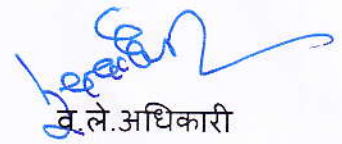 व.ले.अधिकारी